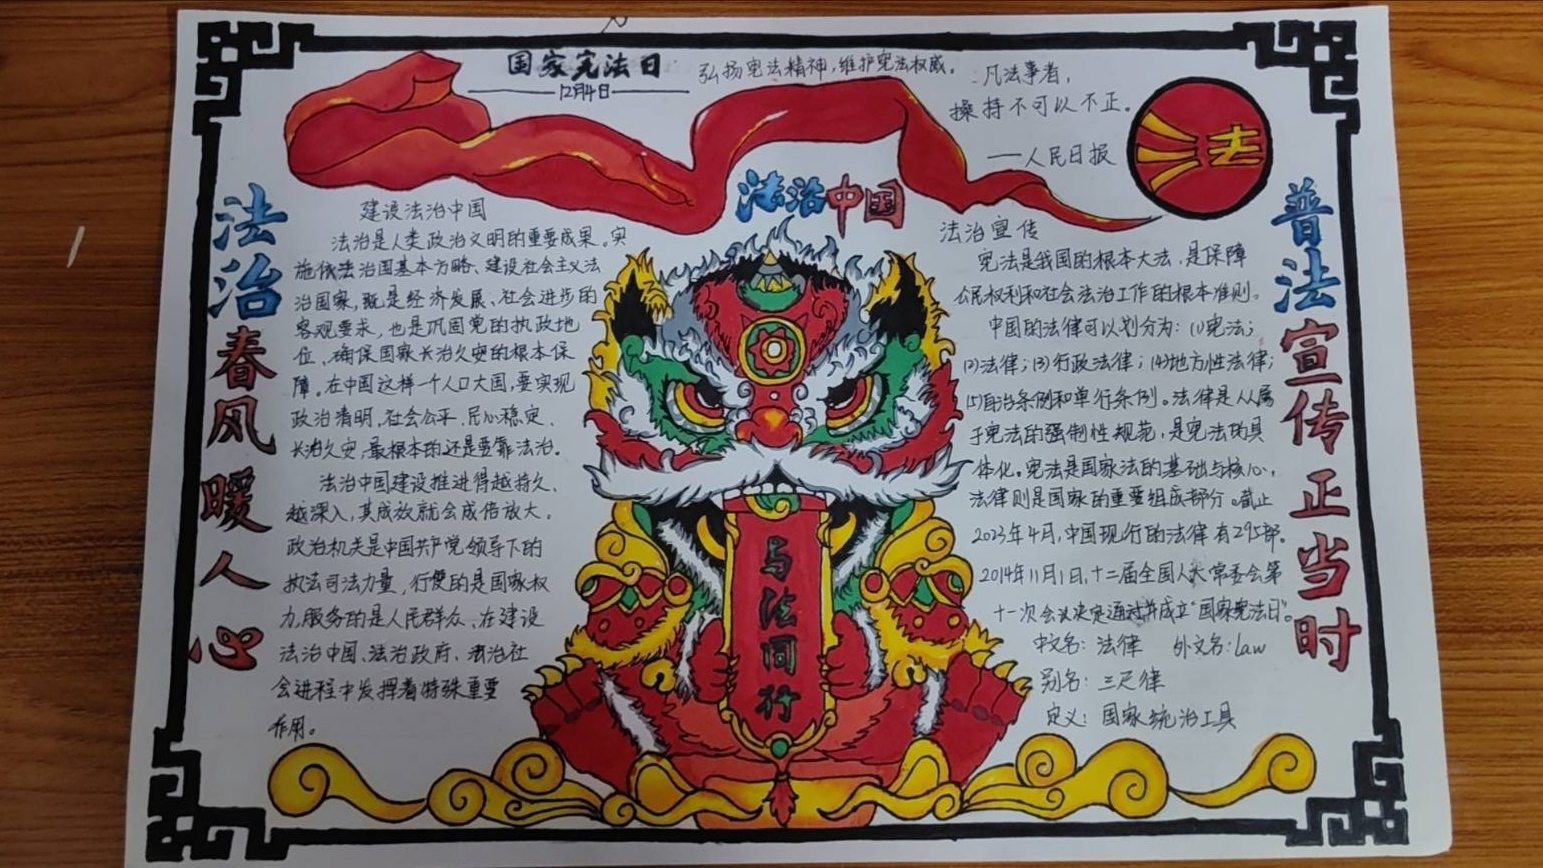 国家宪法日
12月4日
弘扬宪法精神,维护宪法权威。
凡法事者,
操持不可以不正。
——人民日报
法
法治中国
法治春风暖人心
建设法治中国
法治是人类政治文明的重要成果。实
施依法治国基本方略、建设社会主义法
治国家,既是经济发展、社会进步的
客观要求,也是巩固党的执政地
位、确保国家长治久安的根本保
障。在中国这样一个人口大国,要实现
政治清明、社会公平、民心稳定、
长治久安,最根本的还是要靠法治。
法治中国建设推进得越持久、
越深入,其成效就会成倍放大。
政治机关是中国共产党领导下的
执法司法力量,行使的是国家权
力,服务的是人民群众、在建设
法治中国、法治政府、法治社
会进程中发挥着特殊重要
作用。
与法同行
法治宣传
宪法是我国的根本大法,是保障
公民权利和社会法治工作的根本准则。
中国的法律可以划分为:(1)宪法;
(2)法律;(3)行政法律;(4)地方性法律;
(5)自治条例和单行条例。法律是从属
于宪法的强制性规范,是宪法的具
体化。宪法是国家法的基础与核心,
法律则是国家的重要组成部分。截止
2023年4月,中国现行的法律有295部。
2014年11月1日,十二届全国人大常委会第
十一次会议决定通过并成立"国家宪法日"。
中文名:法律 外文名:law
别名:三尺律
定义:国家统治工具
普法宣传正当时